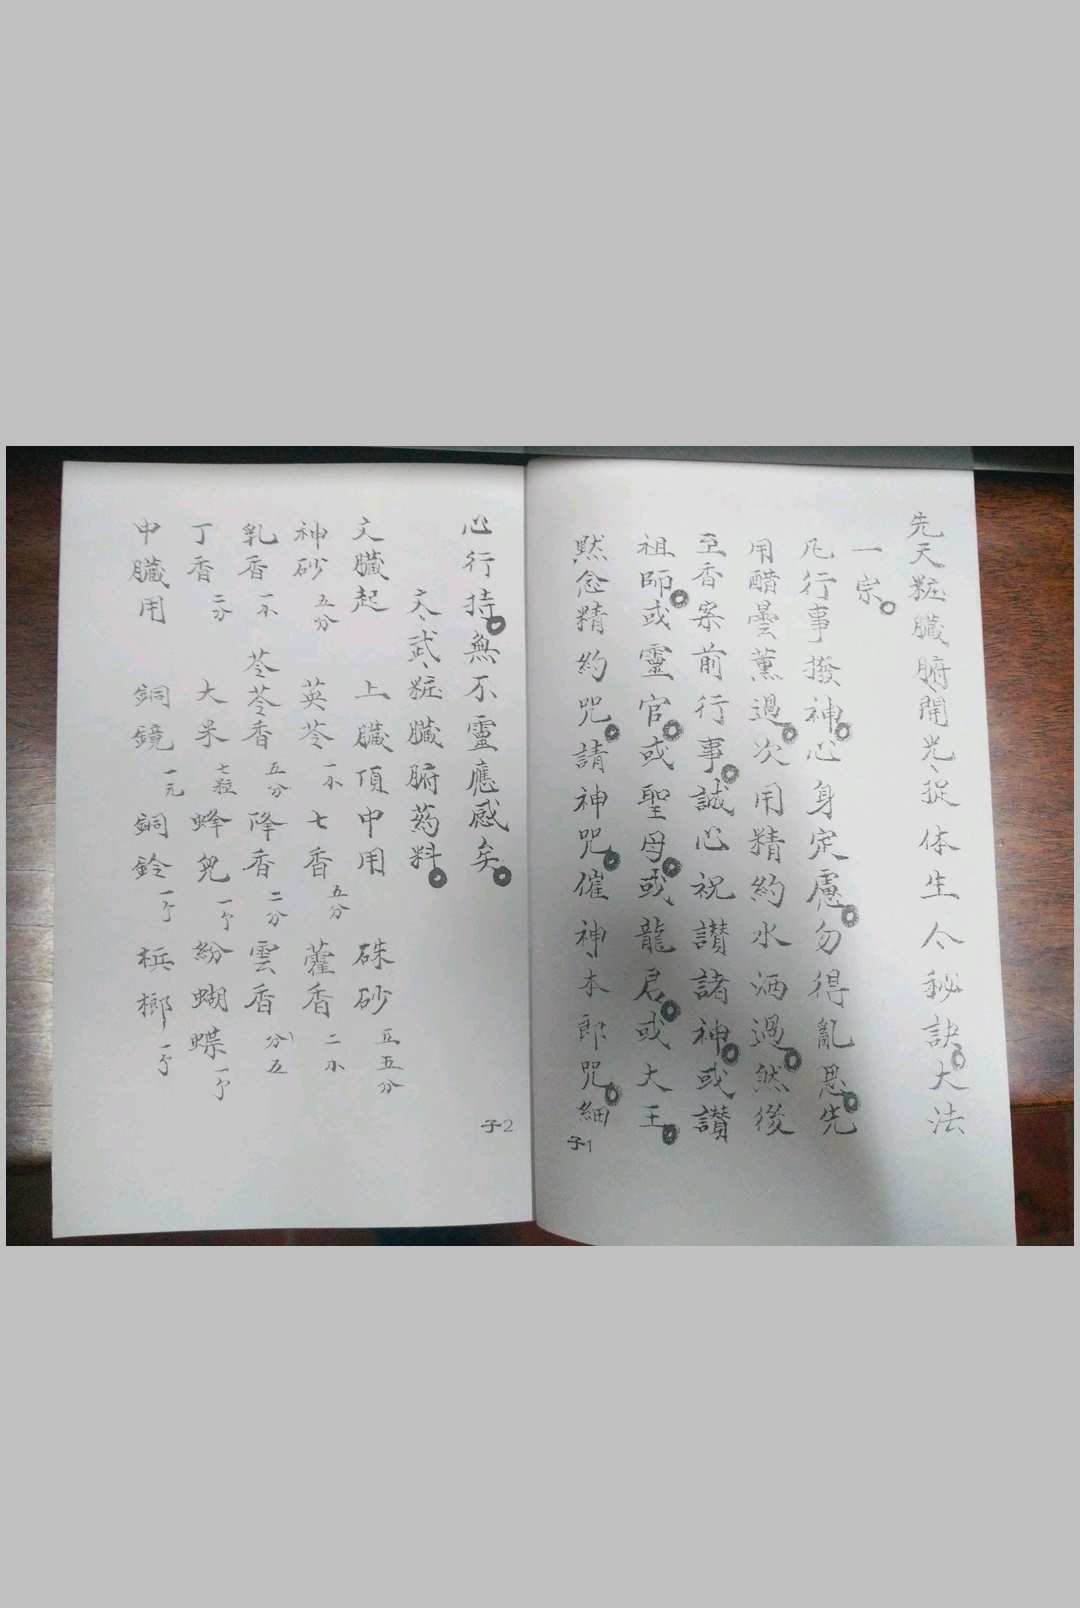 先天粧臟腑開光捉体生人秘訣大法
一宗
凡行事撥神心身定慮勿得亂思先
用醋曇薰過次用精約水洒過然後
至香案前行事誠心祝讃諸神或讃
祖師或靈官或聖母或龍君或大王
黙念精約咒請神咒催神本郎咒細
子1
心行持無不靈應感矣
文武粧臟腑葯料
文臟起 上臟頂中用 硃砂五五分
神砂五分 英苓一小 七香五分 藿香二小
乳香一小 苓苓香五分 降香二分 雲香分五
丁香二分 大米七粒 蜂兒一个 紛蝴蝶一个
中臟用 銅鏡一元 銅鈴一个 梹榔一个
子2